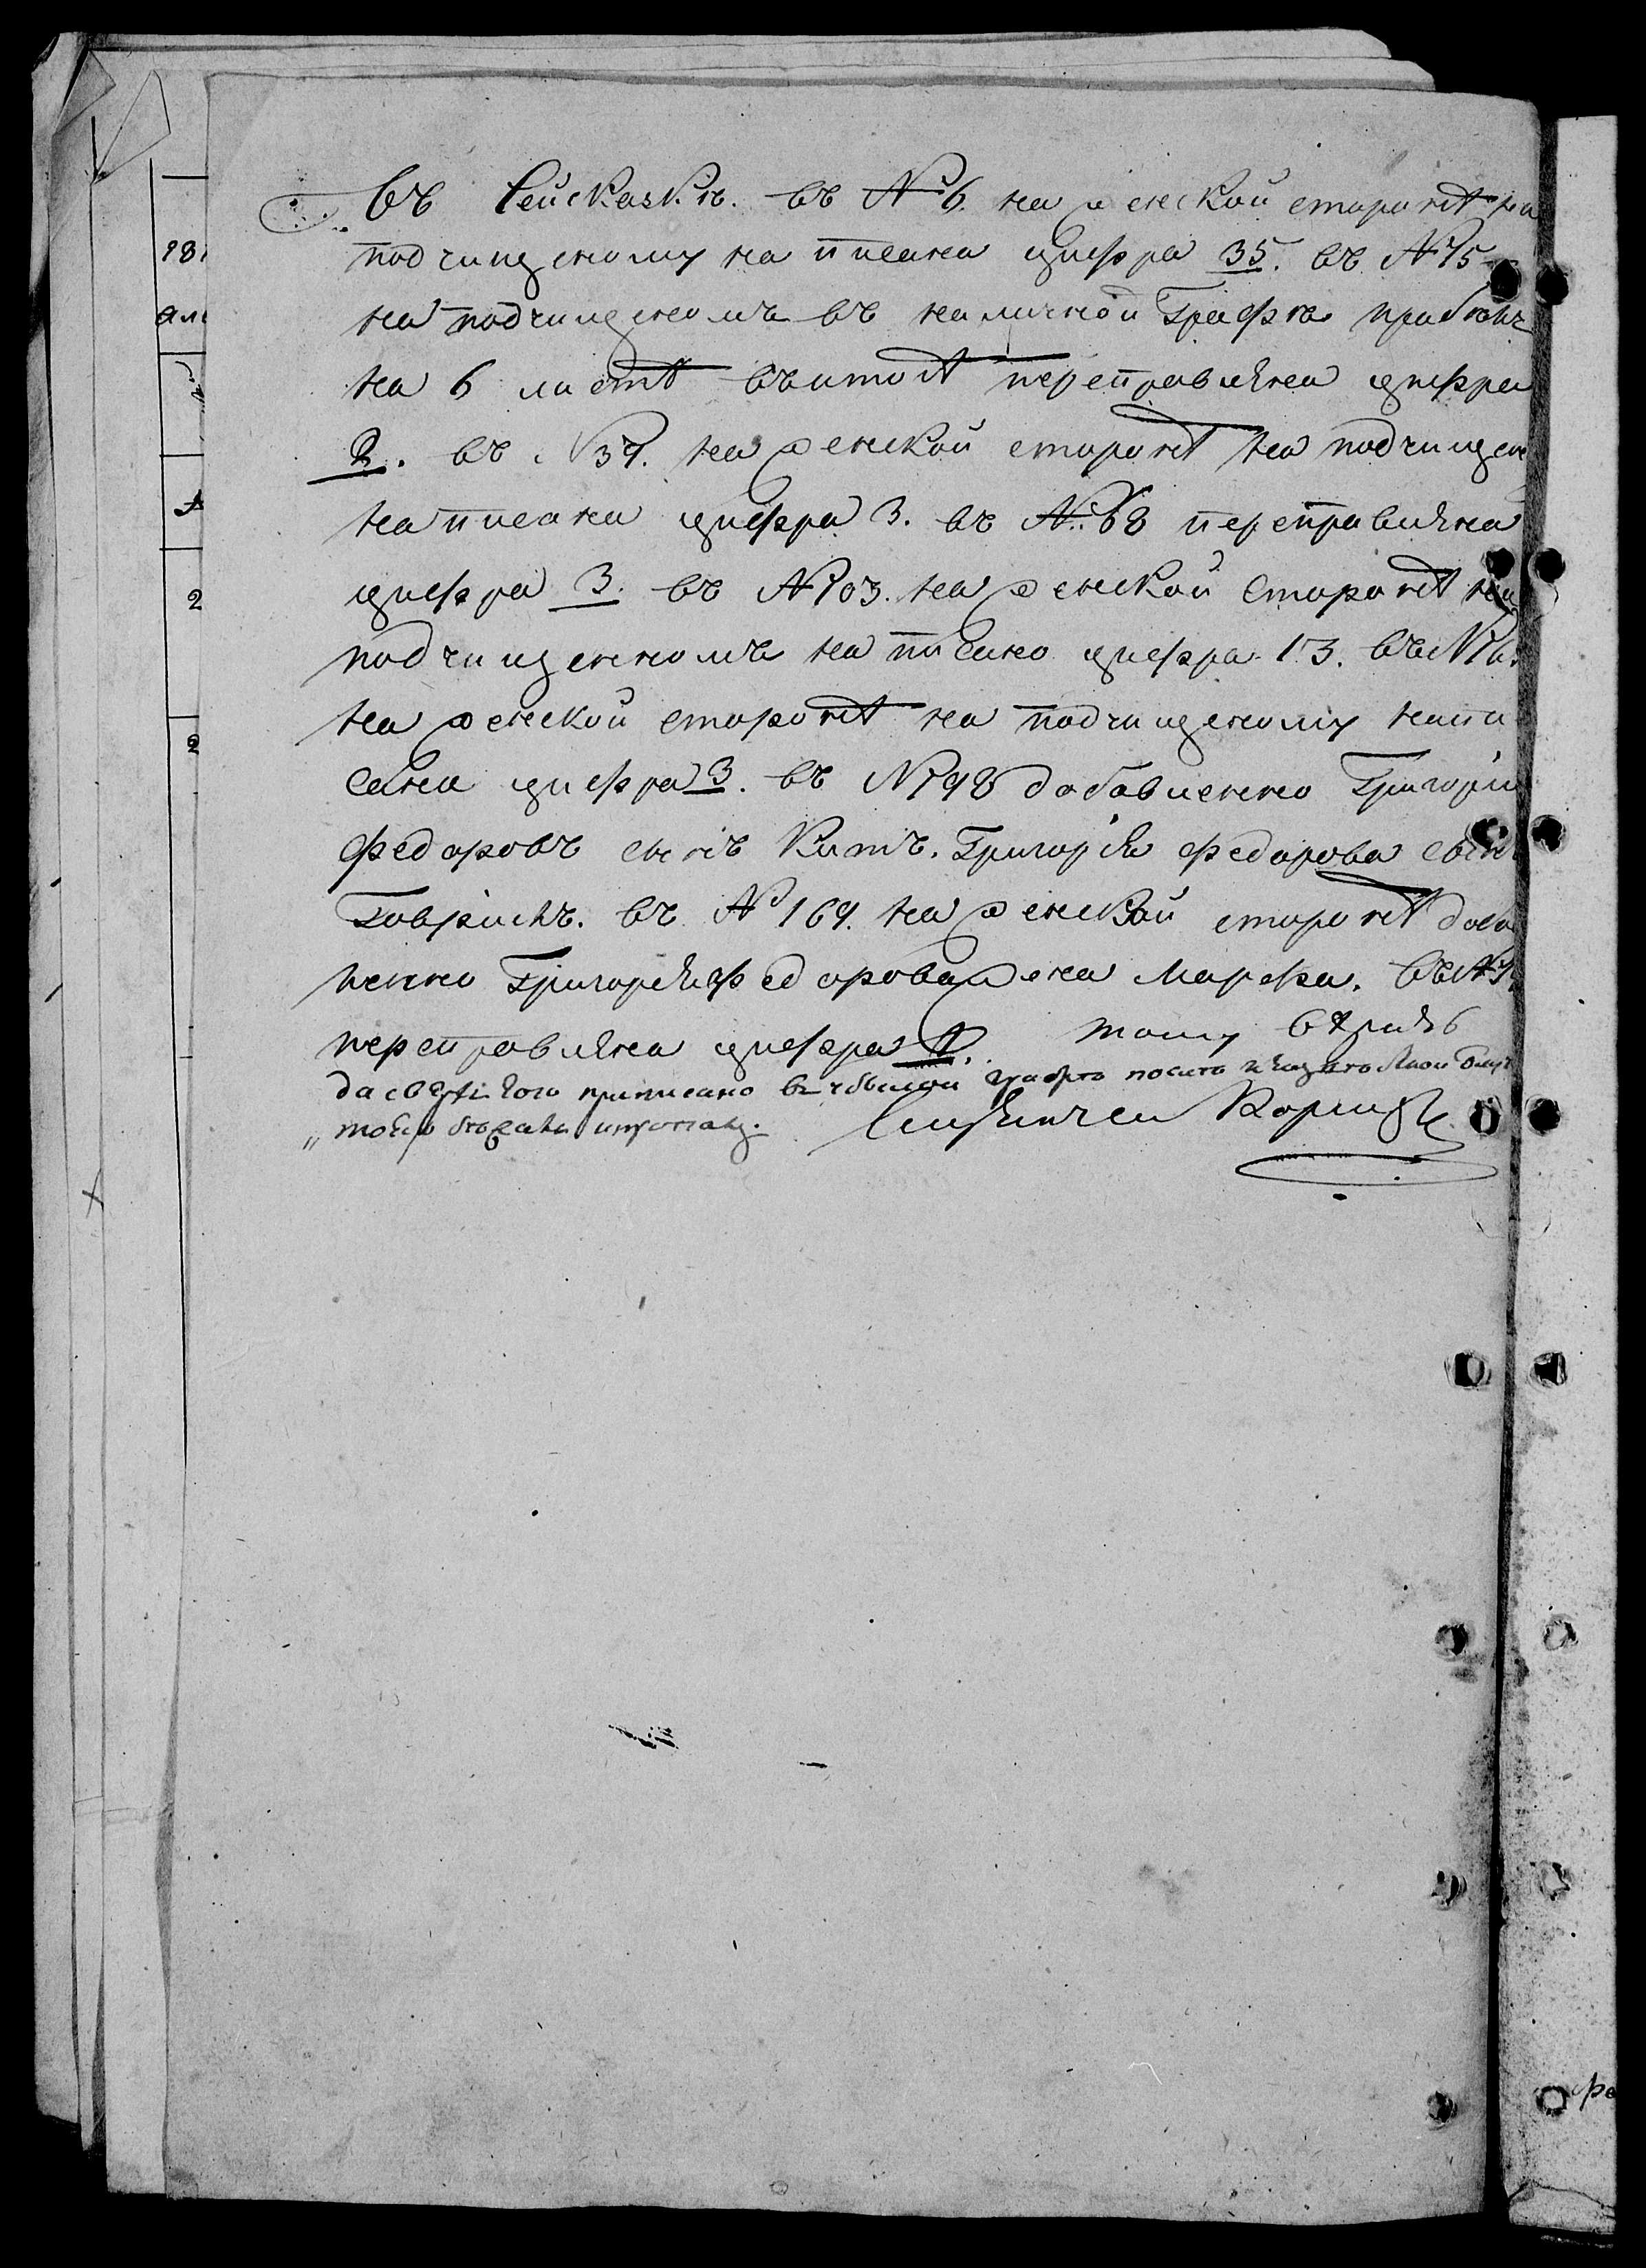 Въ сей сказкѣ. въ №6. на женской сторонѣ на
подчищеному написана цифра 35. въ №15
на подчищеномъ въ наличной Графѣ
на 6 листѣ въ итогѣ переправлена цифра
2. въ №39. на женской сторонѣ на подчищен
написана цифра 3. въ №68 переправлена
цифра 3. въ №103. на женской сторонѣ на
подчищенномъ написано цифра 13. въ
на женской сторонѣ на подчищеному напи
сана цифра 3. въ №148 добавленно Григорій
Федоровъ сынъ Китъ. Григорія Федорова сынъ
Гаврилъ. въ №169. на женской сторонѣ доба
ленно Григорія Федорова жена Марфа. въ
переправлена цифра Тому вѣрить
да сверхъ того приписано въ графѣ